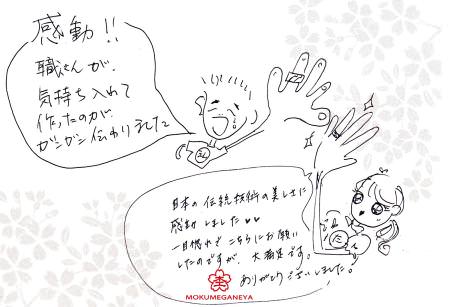 感動!!
職人さんが、
気持ち入れて
作ったのが
ガンガン伝わりました
日本の伝統技術の美しさに
感動しました♥♥
一目惚れでこちらにお願い
したのですが、大満足です。
ありがとうございました。
MOKUMEGANEYA